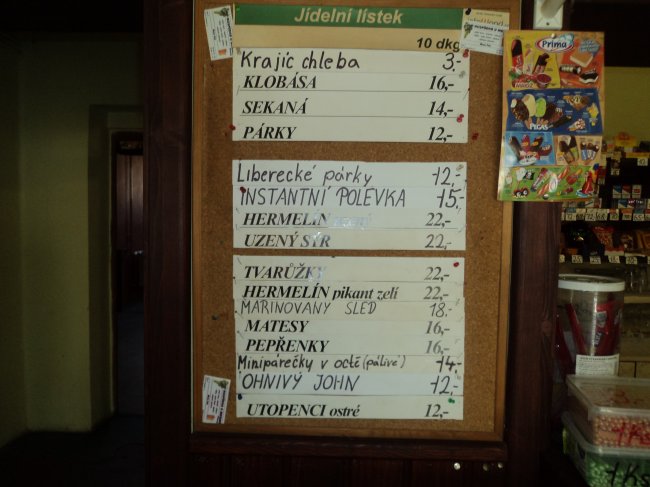 Jídelní lístek
10 dkg
Krajíc chleba 3,-
KLOBÁSA 16,-
SEKANÁ 14,-
PÁRKY 12,-
Liberecké párky 12,-
INSTANTNÍ POLÉVKA 15,-
HERMELÍN 22,-
UZENÝ SÝR 22,-
TVARŮŽKY 22,-
HERMELÍN pikant zelí 22,-
MARINOVANÝ SLEĎ 18,-
MATESY 16,-
PEPŘENKY 16,-
Minipárečky v octě (pálivé) 14,-
OHNIVÝ JOHN 12,-
UTOPENCI ostré 12,-
Prima
PEGAS
1Kč